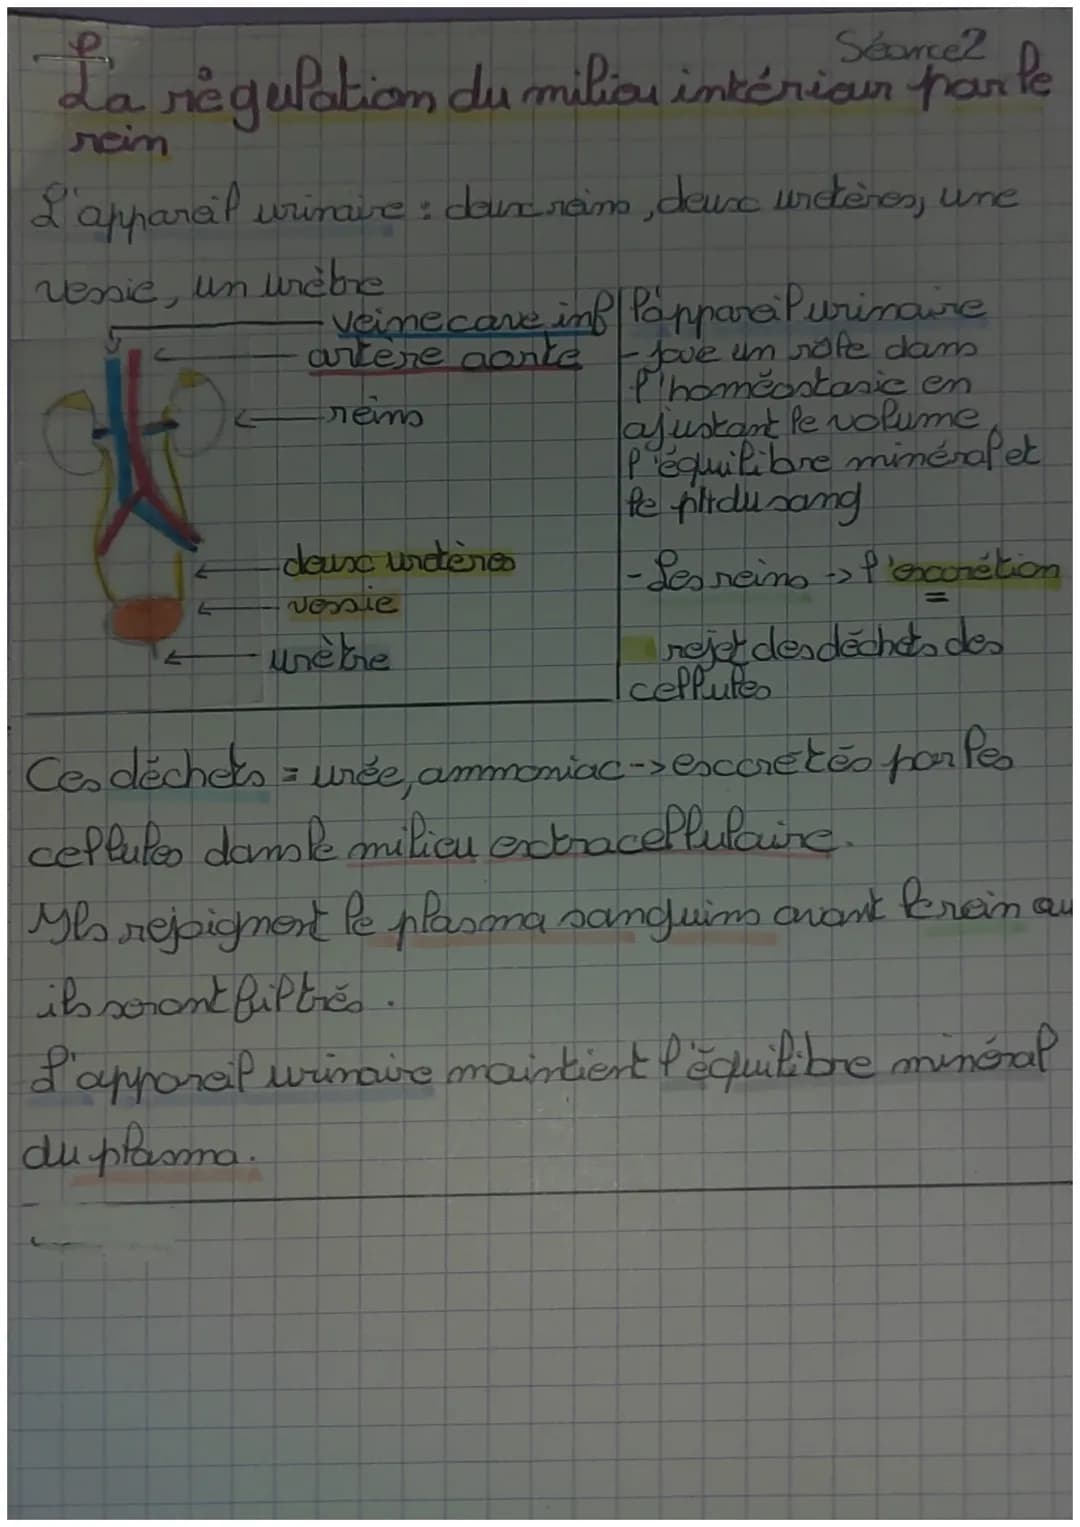 Séance 2
La régulation du milieu intérieur par le
rein
L'appareil urinaire : deux reins, deux uretères, une
vessie, un urètre
veine cave inf
artère aorte
reins
deux uretères
vessie
urètre
l'appareil urinaire
- joue un rôle dans
l'homéostasie en
ajustant le volume,
l'équilibre minéral et
le pH du sang
- Les reins -> l'excrétion
=
rejet des déchets des
cellules
Ces déchets = urée, ammoniac -> excrétés par les
cellules dans le milieu extracellulaire.
Ils rejoignent le plasma sanguins avant le rein au
ils seront filtrés.
L'appareil urinaire maintient l'équilibre minéral
du plasma.